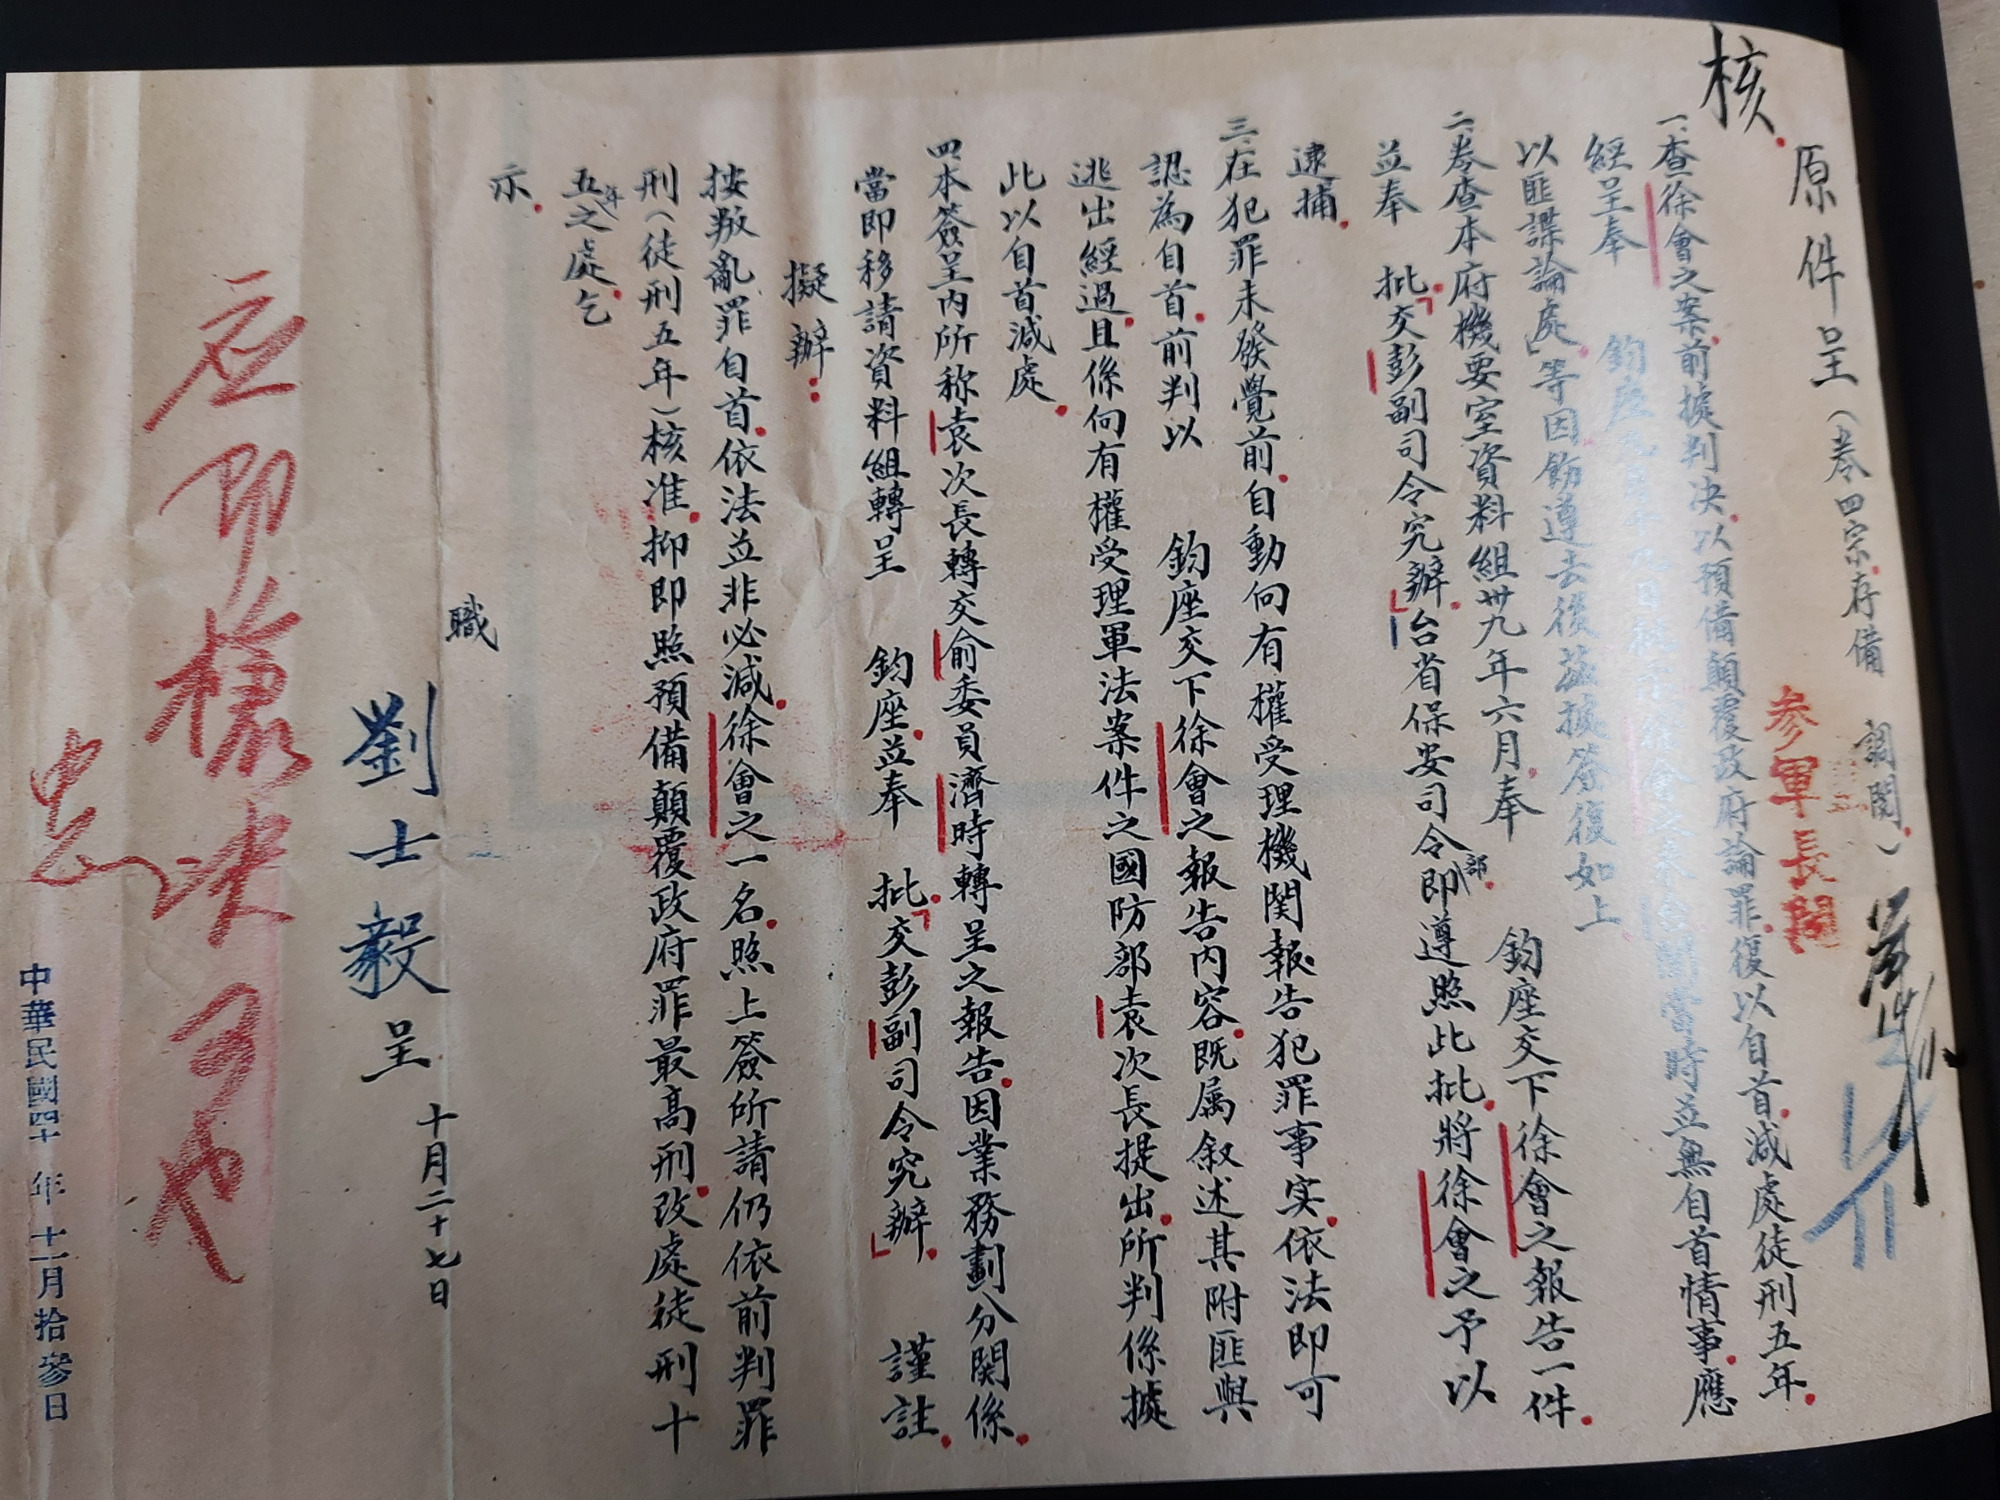 核
原件呈（卷四宗存備　調閱）
參軍長閱
一、查徐會之案前據判決以預備顛覆政府論罪復以自首減處徒刑五年
經呈奉　鈞座　　　　　　　徐會之　　　當時並無自首情事應
以匪諜論處」等因飭遵去後茲據簽復如上
二、卷查本府機要室資料組卅九年六月奉　鈞座交下徐會之報告一件
並奉　批「交彭副司令究辦」台省保安司令部即遵照此批將徐會之予以
逮捕
三、在犯罪未發覺前自動向有權受理機関報告犯罪事实依法即可
認為自首前判以　鈞座交下徐會之報告內容既属叙述其附匪與
逃出經過且係向有權受理軍法案件之國防部袁次長提出所判係據
此以自首減處
四、本簽呈內所称袁次長轉交俞委員濟時轉呈之報告因業務劃分関係
當即移請資料組轉呈　鈞座並奉　批「交彭副司令究辦」　謹註
擬辦：
按叛亂罪自首依法並非必減徐會之一名照上簽所請仍依前判罪
刑（徒刑五年）核准抑即照預備顛覆政府罪最高刑改處徒刑十
五年之處乞
示
職
劉士毅呈　十月二十七日
应即槍决可也
中華民國四十年十一月拾參日